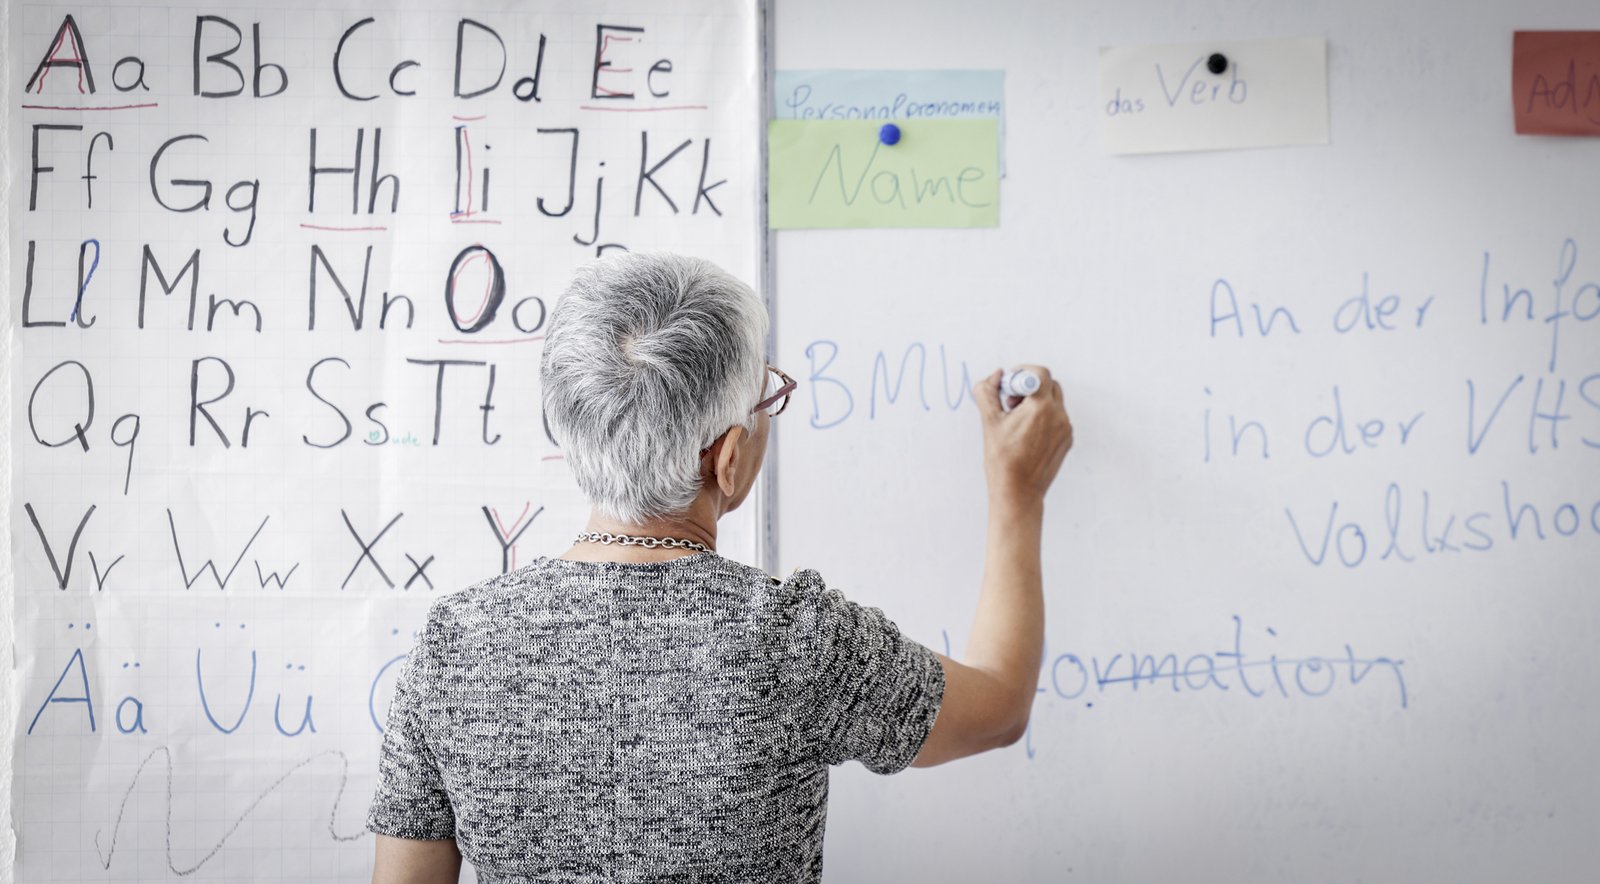 Aa Bb Cc Dd Ee
Ff Gg Hh Ii Jj Kk
Ll Mm Nn Oo
Qq Rr Ss Tt
Vv Ww Xx Y
Ää Üü
Personalpronomen
Name
das Verb
BMW
An der Info
in der VHS
Volkshoc
formation